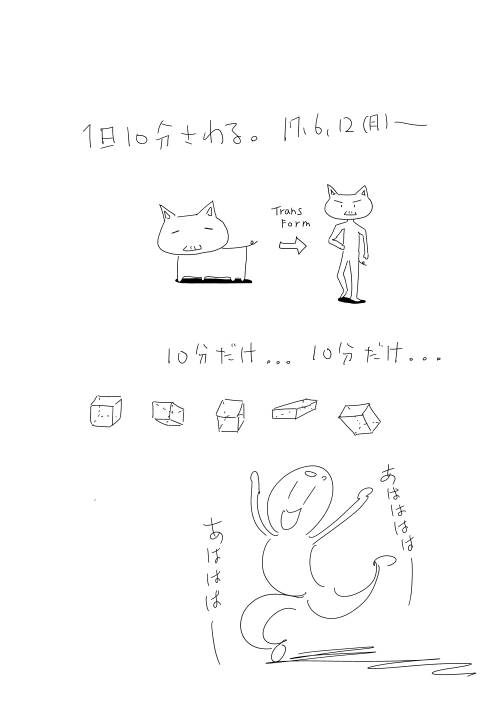 1日10分さわる。 17.6.12(月)〜
Trans
Form
10分だけ... 10分だけ...
あはははは
あははは